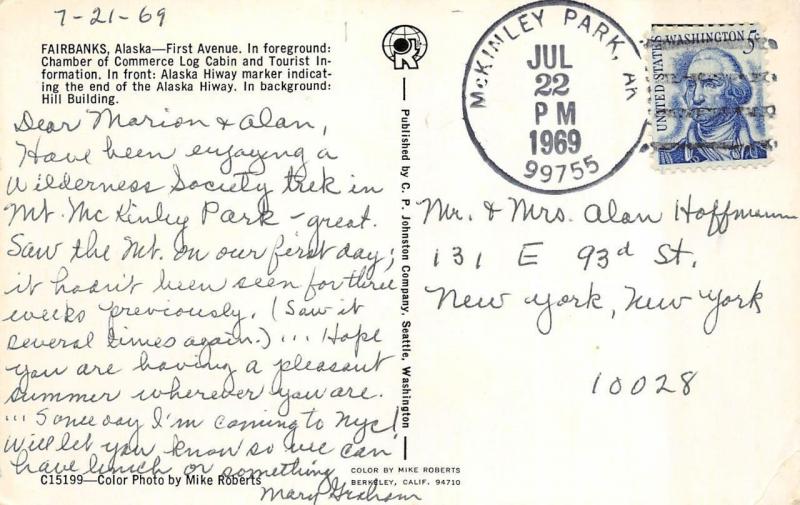 7-21-69
FAIRBANKS, Alaska—First Avenue. In foreground:
Chamber of Commerce Log Cabin and Tourist In-
formation. In front: Alaska Hiway marker indicat-
ing the end of the Alaska Hiway. In background:
Hill Building.
Dear Marion & Alan,
Have been enjoying a
Wilderness Society trek in
Mt. McKinley Park - great.
Saw the Mt. on our first day;
it hadn't been seen for three
weeks previously. (Saw it
several times again.) ... Hope
you are having a pleasant
summer wherever you are.
... Someday I'm coming to NYC!
Will let you know so we can
have lunch or something
Mary Graham
C15199—Color Photo by Mike Roberts
Published by C. P. Johnston Company, Seattle, Washington
COLOR BY MIKE ROBERTS
BERKELEY, CALIF. 94710
McKINLEY PARK, AK
JUL
22
PM
1969
99755
UNITED STATES
WASHINGTON 5c
Mr. & Mrs. Alan Hoffmann
131 E 93d St.
New York, New York
10028